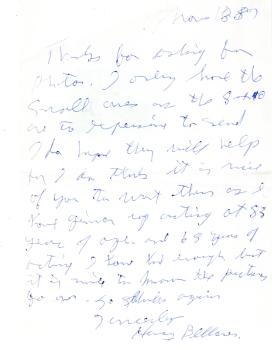 Nov 13 87
Thanks for asking for
photos. I only have the
small ones as the 8-x10
are to expensive to send
I do hope they will help
for I do think it is nice
of you to want them as I
have given up acting at 88
years of age. and 69 years of
acting I have had enough but
it is nice to know the pictures
go on. So thanks again
Sincerely